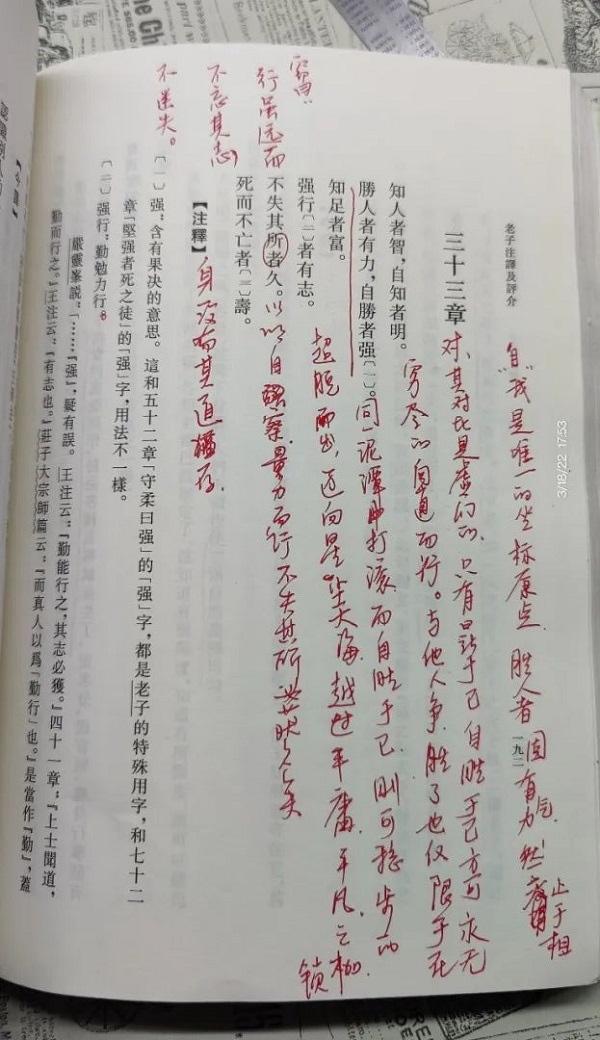 老子注譯及評介
一九二
三十三章
知人者智，自知者明。
勝人者有力，自勝者强〔一〕。
知足者富。
强行〔二〕者有志。
不失其所者久。
死而不亡者〔三〕壽。
【注釋】
〔一〕强：含有果决的意思。這和五十二章「守柔曰强」的「强」字，都是老子的特殊用字，和七十二
章「堅强者死之徒」的「强」字，用法不一樣。
〔二〕强行：勤勉力行。
嚴靈峯説：「……『强』，疑有誤。王注云：『勤能行之，其志必獲。』四十一章：『上士聞道，
勤而行之。』王注云：『有志也。』莊子大宗師篇云：『而真人以爲「勤行」也。』是當作『勤』，蓋
【今譯】
“自”我是唯一的坐标原点，胜人者固有力气，然止于相
对，其对比是虚幻的，只有曰诉于己，自胜于己，方可永无
穷尽的自道而行。与他人争，胜了也仅限于在
同一泥潭中打滚，而自胜于己，则可稳步的
超脱而出，迈向星辰大海，越过平庸、平凡之枷
锁
行虽远而
不忘其志，
不迷失。
以自察，量力而行，不失其所
身没而其道犹存
3/18/22 17:53